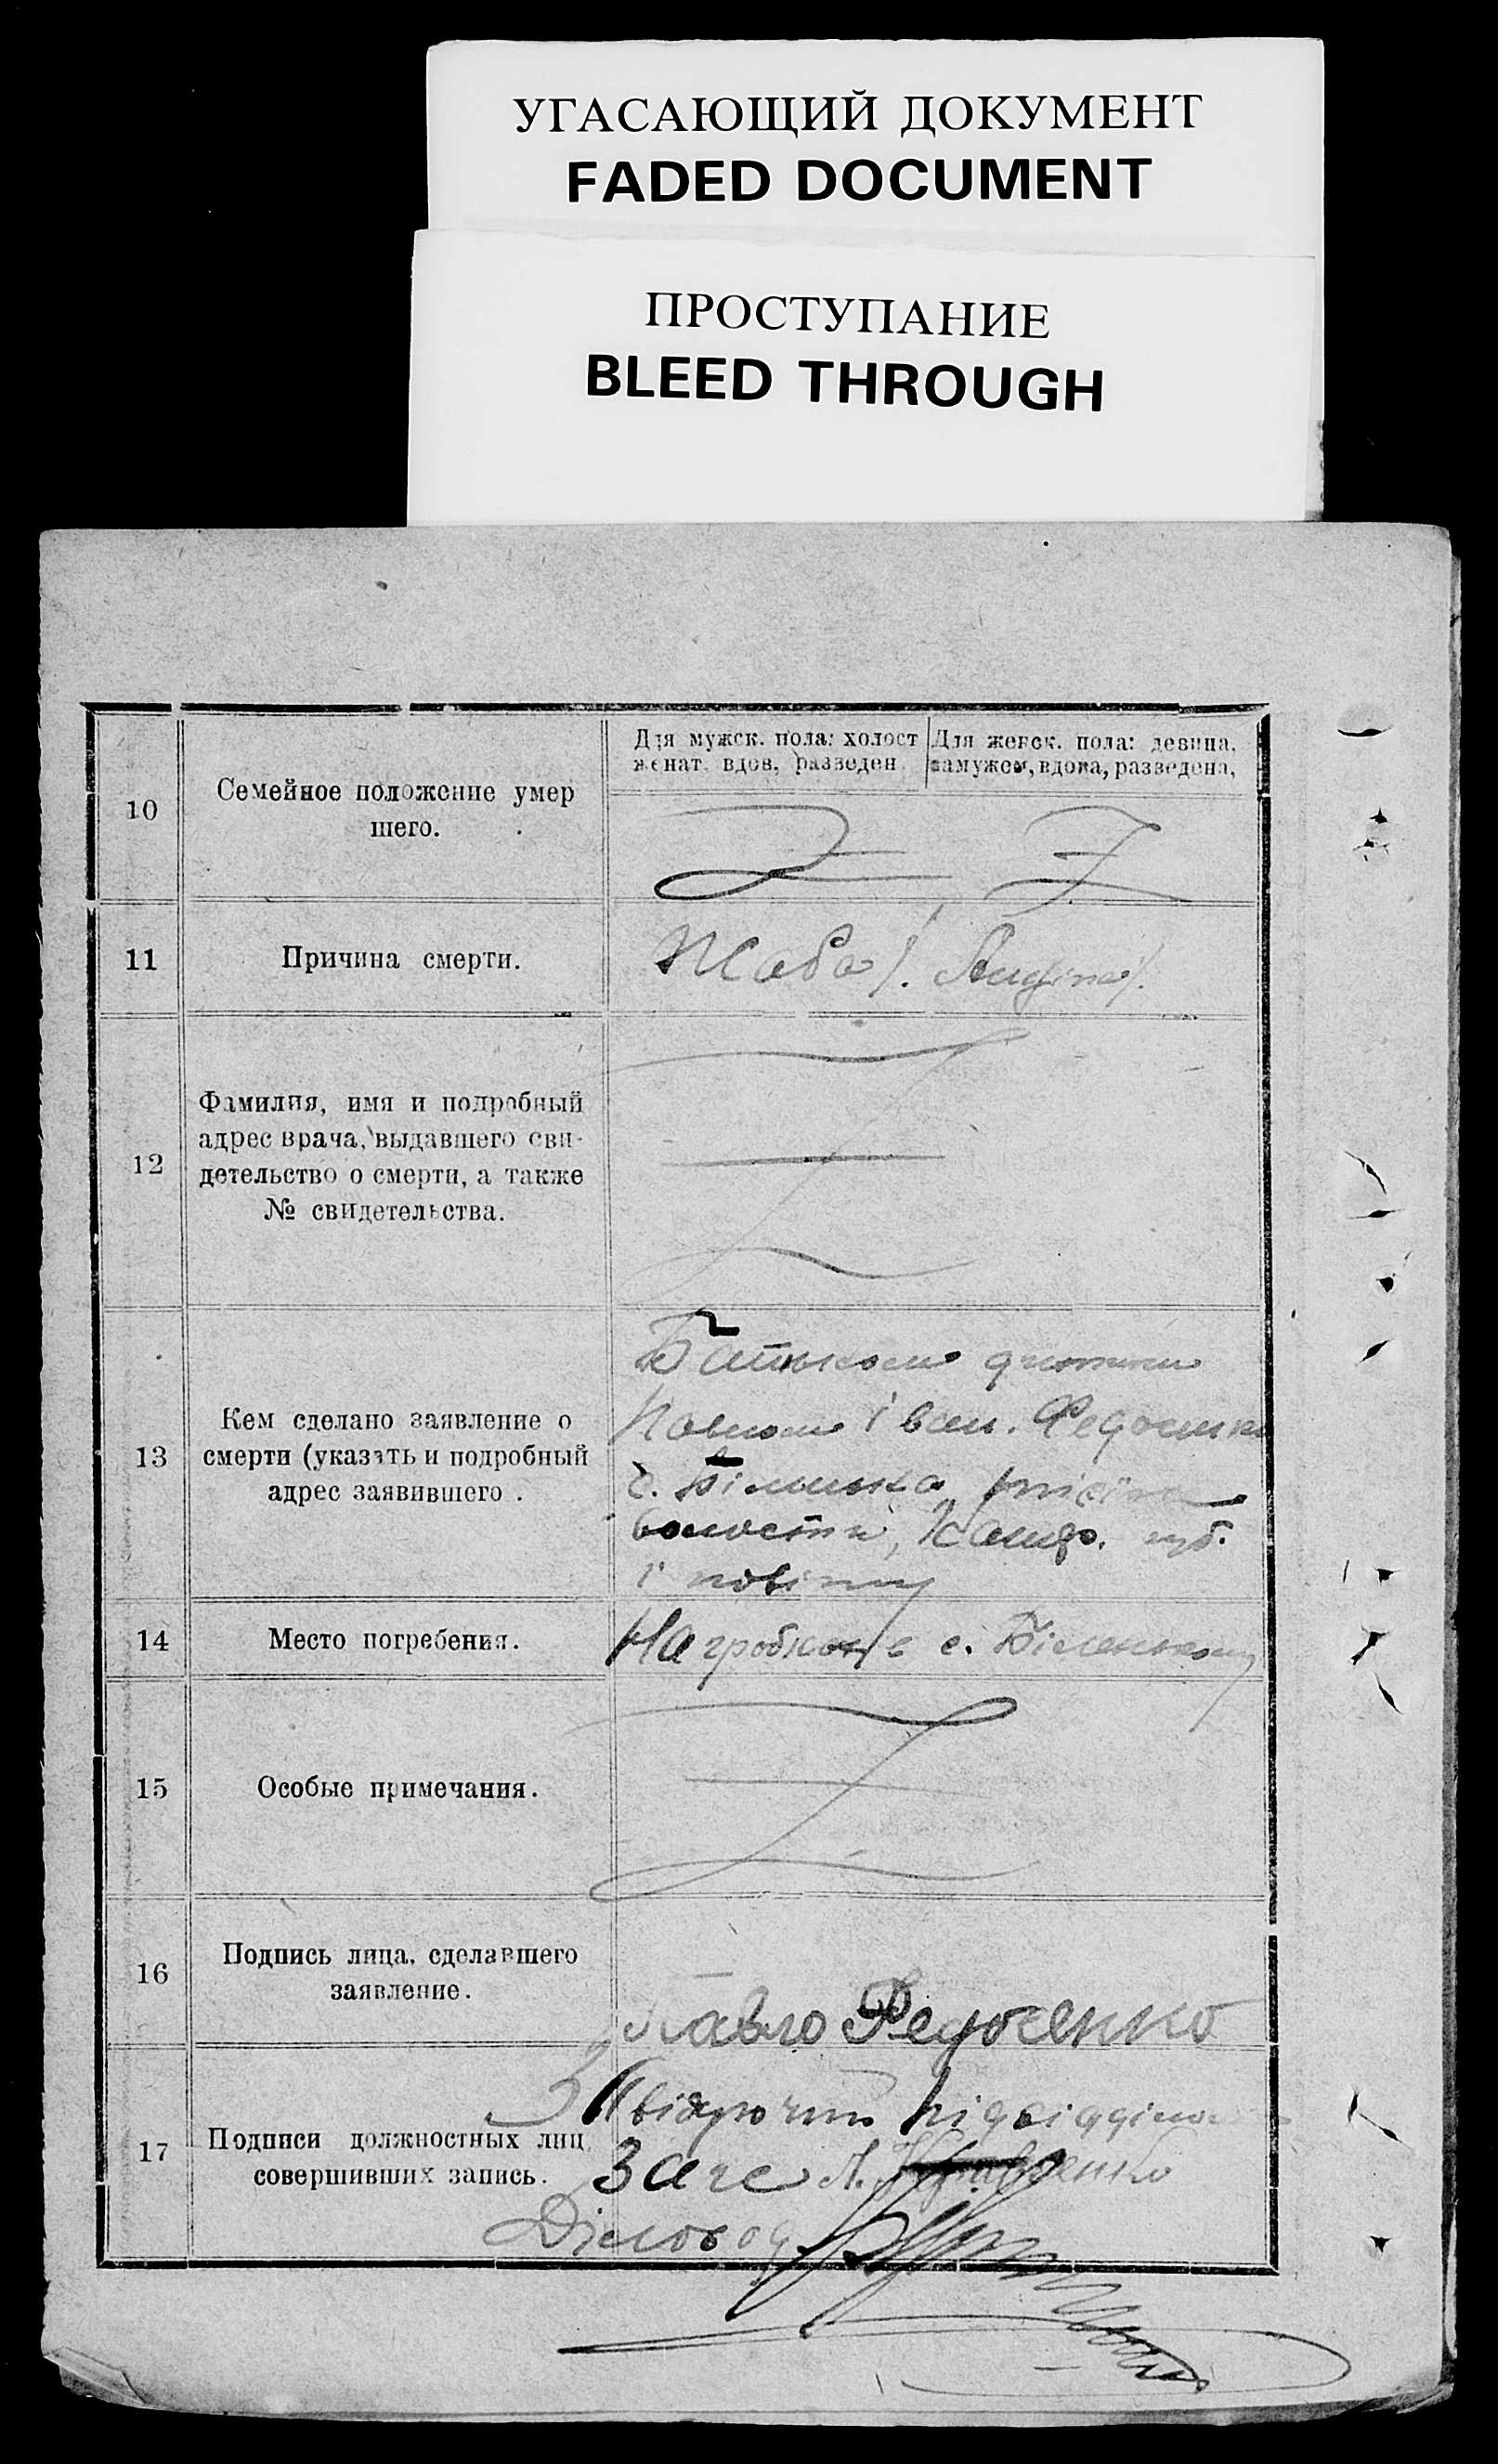 УГАСАЮЩИЙ ДОКУМЕНТ
FADED DOCUMENT
ПРОСТУПАНИЕ
BLEED THROUGH
10
Семейное положение умер
шего.
Для мужск. пола: холост
женат. вдов, разведен.
Для женск. пола: девица,
замужем, вдова, разведена,
11
Причина смерти.
Жаба /. Angina /.
12
Фамилия, имя и подробный
адрес врача, выдавшего сви-
детельство о смерти, а также
№ свидетельства.
13
Кем сделано заявление о
смерти (указать и подробный
адрес заявившего .
Батьком дитини
Павлом Іван. Федосенко
с. Біленька,
волости, губ.
і повіту
14
Место погребения.
На гробках в с. Біленькому
15
Особые примечания.
16
Подпись лица, сделавшего
заявление.
Павло Федосенко
17
Подписи должностных лиц,
совершивших запись.
підвідділом
Загс
Діловод